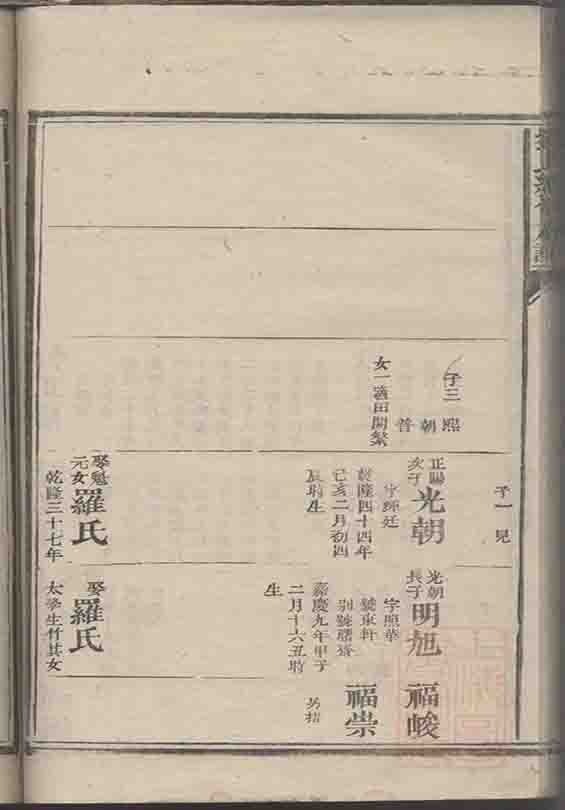 子三
熙
朝
普
女一適田開繁
子一見
正陽
次子
光朝
乾隆四十四年
己亥二月初四
辰時生
娶魁
元女
羅氏
乾隆三十七年
光朝
長子
明旭
字照華
號東軒
嘉慶九年甲子
二月十六丑時
生
福峻
福崇
娶
羅氏
太學生什其女